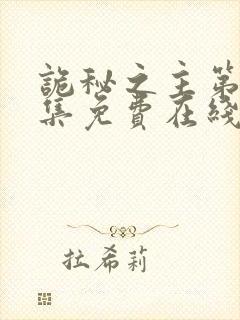 詭秘之主第
集免費在綫
拉希莉